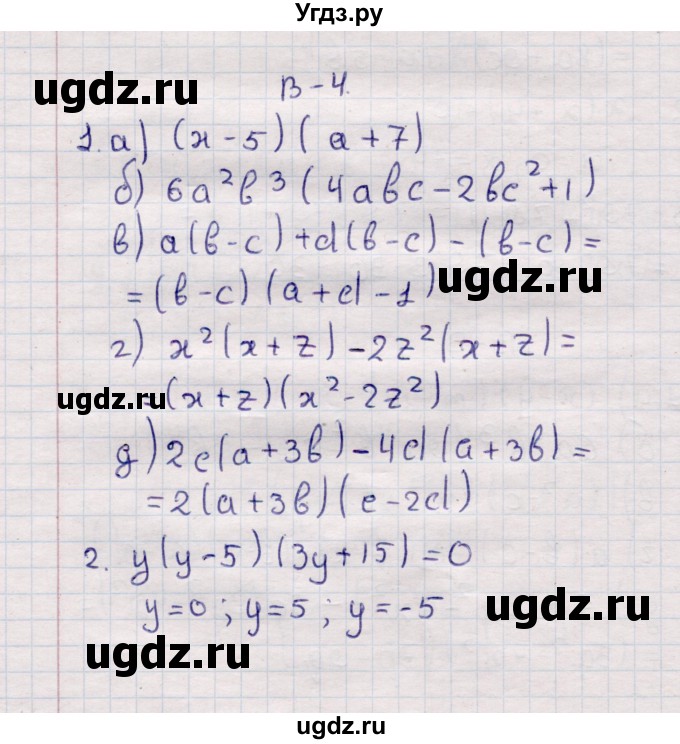 Угдз.ру
ugdz.ru
В-4.
1. а) (x-5)(a+7)
б) 6a²b³(4abc-2bc²+1)
в) a(b-c)+d(b-c)-(b-c)=
ugdz.ru
=(b-c)(a+d-1)
г) x²(x+z)-2z²(x+z)=
ugdz.ru
=(x+z)(x²-2z²)
д) 2c(a+3b)-4d(a+3b)=
=2(a+3b)(c-2d)
2. y(y-5)(3y+15)=0
y=0; y=5; y=-5
ugdz.ru
ugdz.ru
ugdz.ru